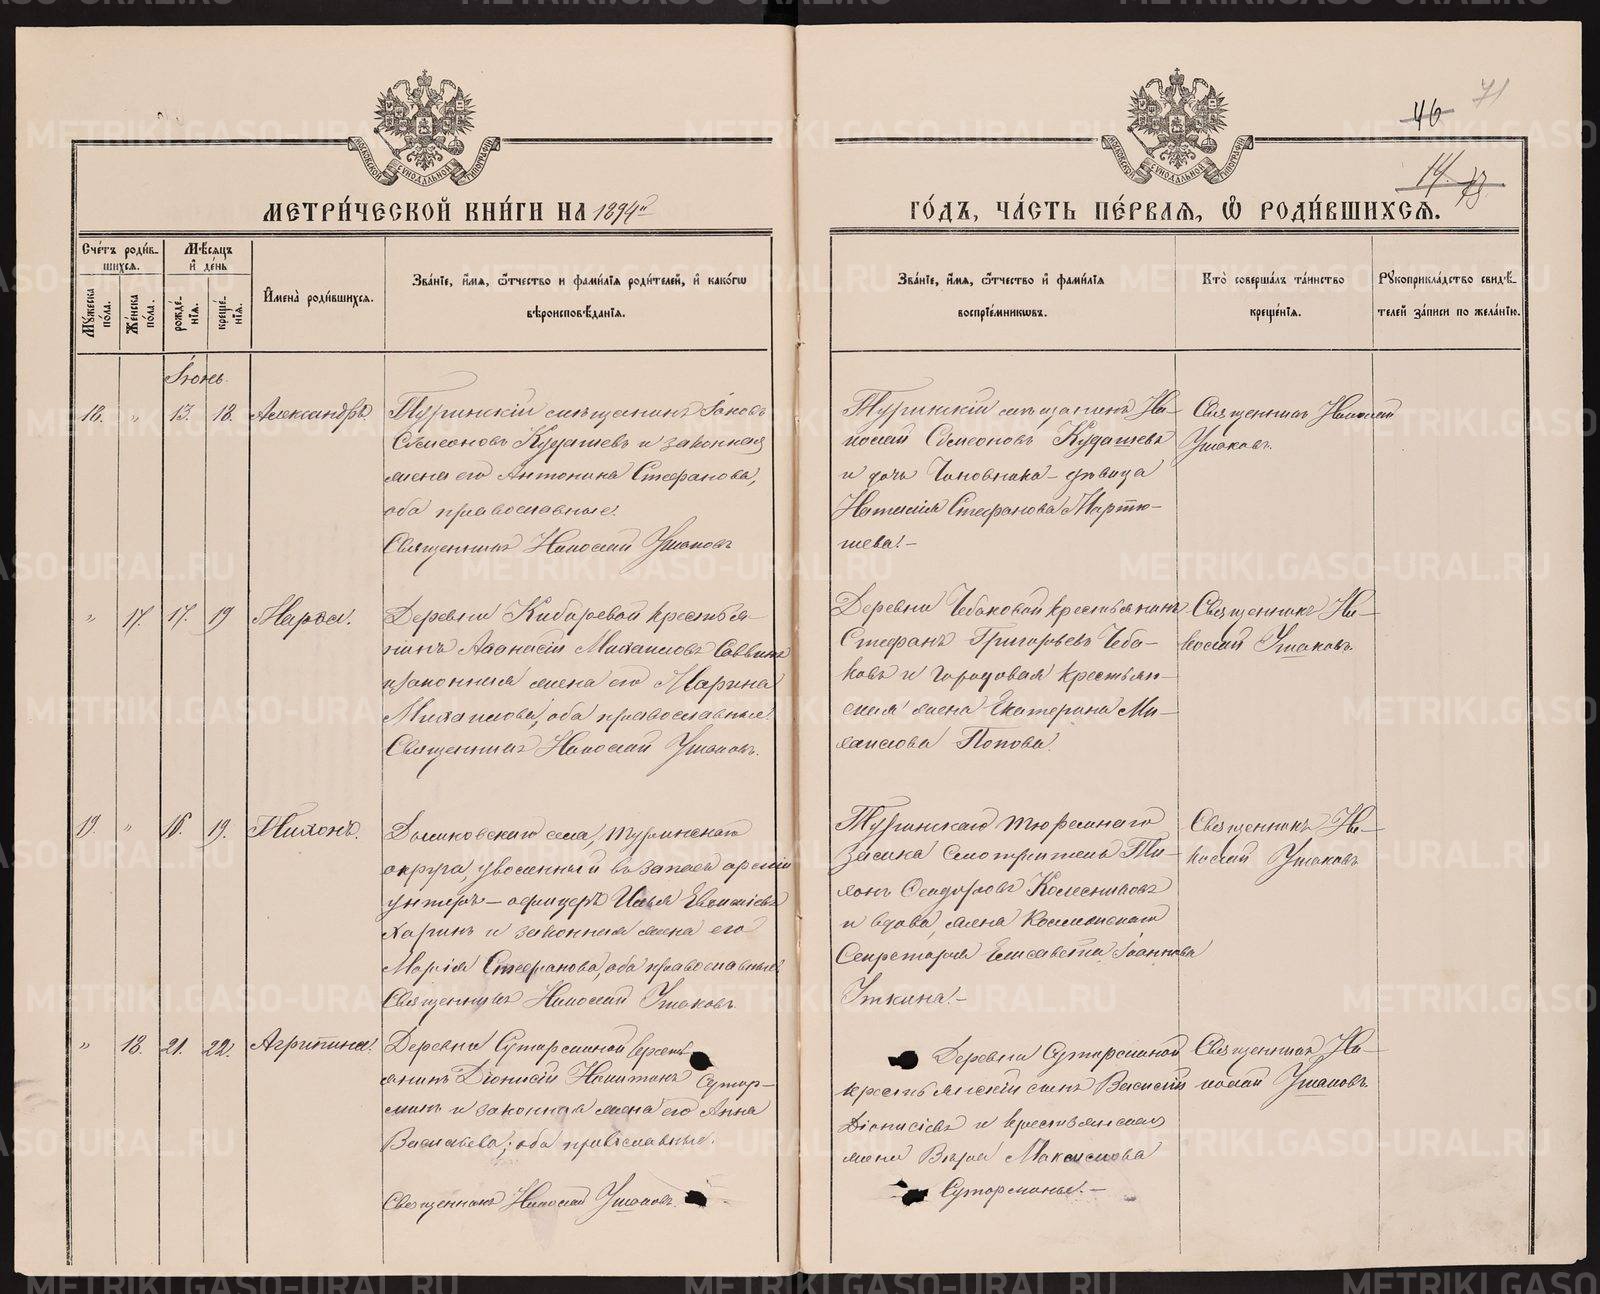 46
71
14
73
МЕТРИ́ЧЕСКОЙ КНИ́ГИ НА 1894й
ГО́ДЪ, ЧА́СТЬ ПЕ́РВАЯ, Ѿ РОДИ́ВШИХСЯ.
Сче́тъ роди́в-
шихся.
Мѣсяцъ
и де́нь
Мꙋжеска по́ла.
Же́нска по́ла.
рожде́-
нія.
креще́-
нія.
Имена̀ роди́вшихся.
Зва́ніе, и́мя, ѻ́тчество и фами́лія роди́телей, и како́гѡ
вѣроисповѣ́данія.
Зва́ніе, и́мя, ѻ́тчество и фами́лія
воспріе́мникѡвъ.
Кто̀ соверша́лъ та́инство
креще́нія.
Рꙋкоприкла́дство свидѣ́-
телей за́писи по жела́нію.
Іюнь.
18. " 13. 18. Александръ
Туринскій мѣщанинъ Іаковъ
Сѵмеоновъ Кудашевъ и законная
жена его Антонина Стефанова,
оба православные.
Священникъ Николай Ушаковъ
Туринскій мѣщанинъ Ни-
колай Сѵмеоновъ Кудашевъ
и дочь Чиновника - дѣвица
Наталія Стефанова Мартю-
шева.-
Священникъ Николай
Ушаковъ.
" 17. 17. 19 Марѳа.
Деревни Кибиревой крестья-
нинъ Аѳанасій Михаиловъ Саввинъ
и законная жена его Марина
Михаилова, оба православные.
Священникъ Николай Ушаковъ.
Деревни Чебаковой крестьянинъ
Стефанъ Григорьевъ Чеба-
ковъ и городовая крестьян-
ская жена Екатерина Ми-
хаилова Попова.
Священникъ Ни-
колай Ушаковъ.
19. " 16. 19. Тихонъ.
села, Туринскаго
округа, уволенный въ запасъ арміи
унтеръ-офицеръ Илья Евѳиміевъ
Харинъ и законная жена его
Марія Стефанова, оба православные.
Священникъ Николай Ушаковъ.
Туринскаго тюремнаго
замка смотритель Ти-
хонъ Сидоровъ Колесниковъ
и вдова, жена Коллежскаго
Секретаря Елисавета Іоаннова
Уткина.-
Священникъ Ни-
колай Ушаковъ
" 18. 21. 22. Агрипина.
Деревни Суторминой кресть-
янинъ Діонисій Никитинъ Сутор-
минъ и законная жена его Анна
Васильева; оба православные.
Священникъ Николай Ушаковъ.
Деревни Суторминой
крестьянскій сынъ Василій
Діонисіевъ и крестьянская
жена Вѣра Максимова
Сутормины.-
Священникъ Ни-
колай Ушаковъ.
METRIKI.GASO-URAL.RU